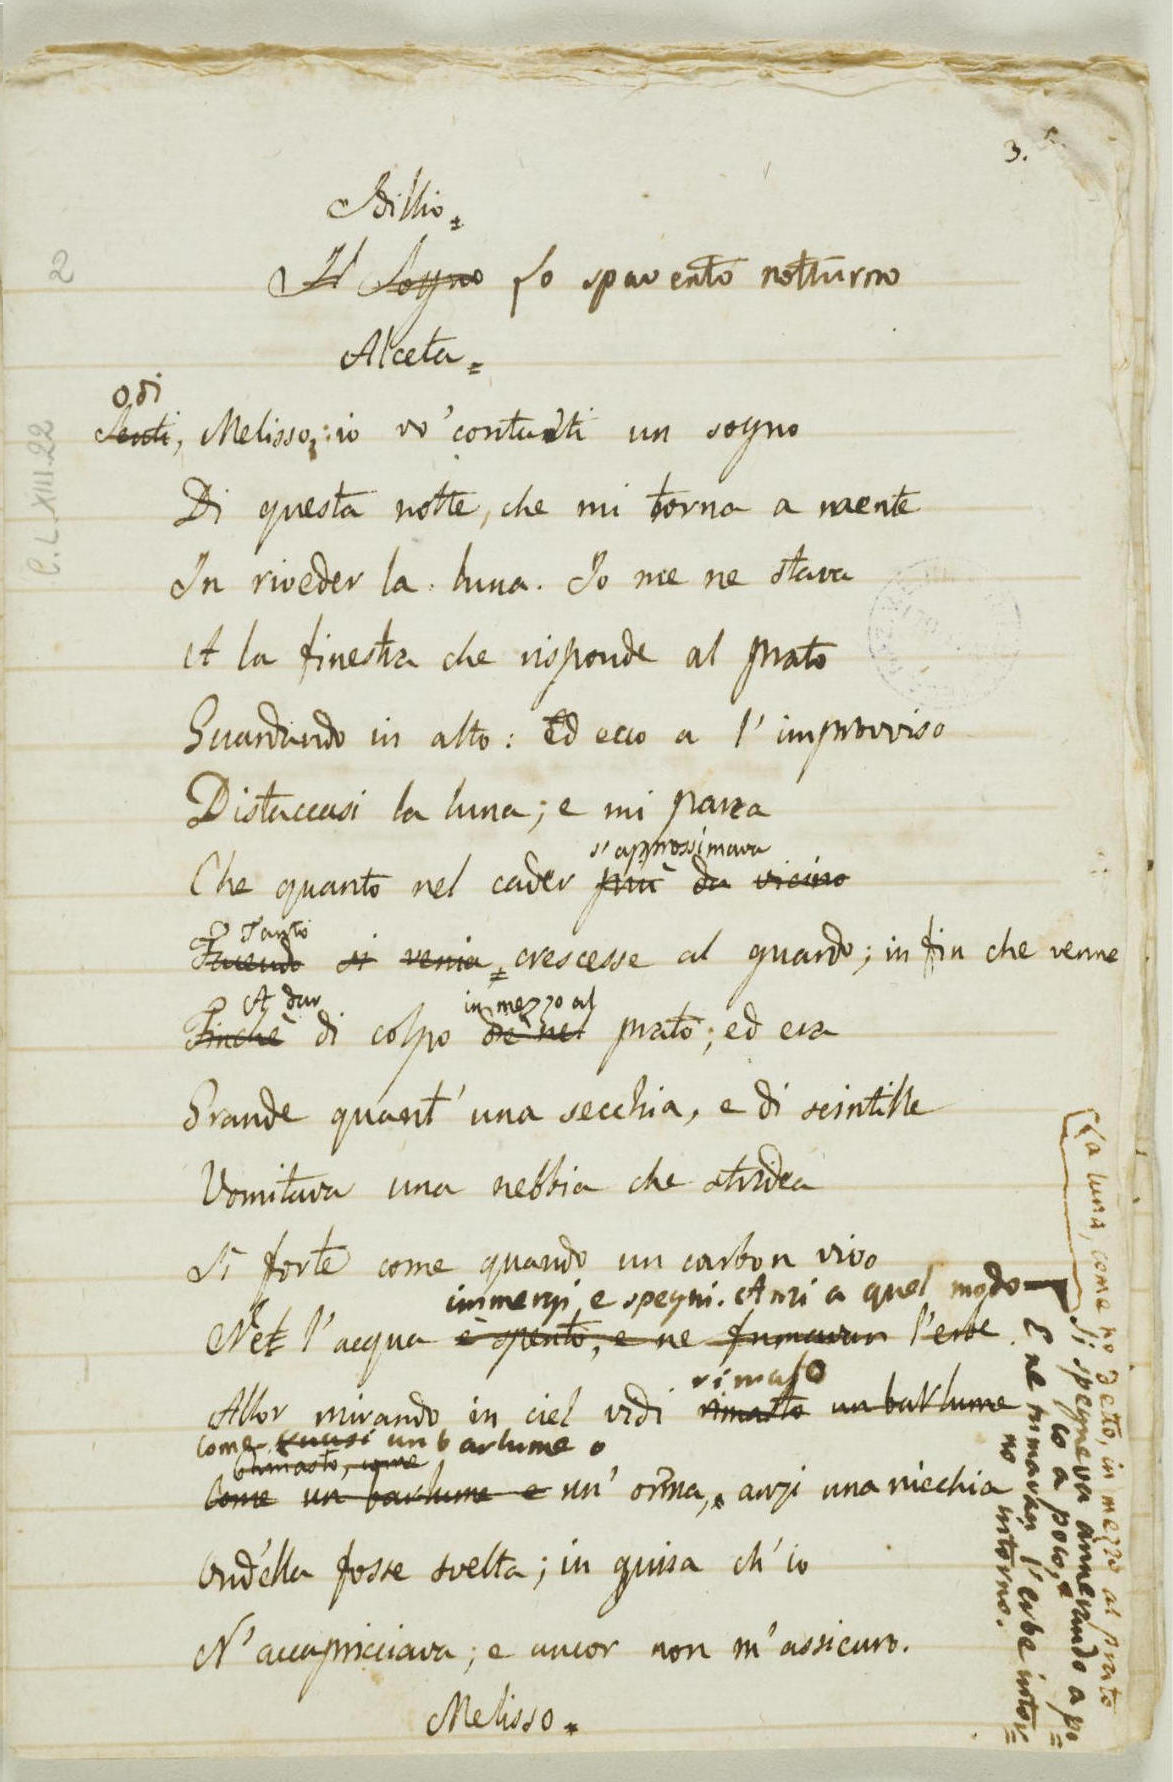 3.
Idillio.
Il Sogno Lo spavento notturno
Alceta.
Odi
Senti, Melisso: io vo' contarti un sogno
Di questa notte, che mi torna a mente
In riveder la luna. Io me ne stava
A la finestra che risponde al prato
Guardando in alto: Ed ecco a l'improvviso
Distaccasi la luna; e mi parea
s'approssimava
Che quanto nel cader più da vicino
Tanto
Facendo si venia crescesse al guardo; in fin che venne
A dar in mezzo al
Finchè di colpo dè nel prato; ed era
Grande quant'una secchia, e di scintille
Vomitava una nebbia che stridea
Sì forte come quando un carbon vivo
immergi, e spegni. Anzi a quel modo
Nel l'acqua è spento, e ne fumavan l'erbe.
rimaso
Allor mirando in ciel vidi rimasto un barlume
come quasi un barlume o
rimasto, come
Come un barlume e un' orma, anzi una nicchia
Ond'ella fosse svelta; in guisa ch'io
N'accapricciava; e ancor non m'assicuro.
Melisso.
La luna, come ho detto, in mezzo al prato
Si spegneva annerando a po=
co a poco, e
E ne fumavan l'erbe intor=
no intorno.
20
C.L.XIII.22